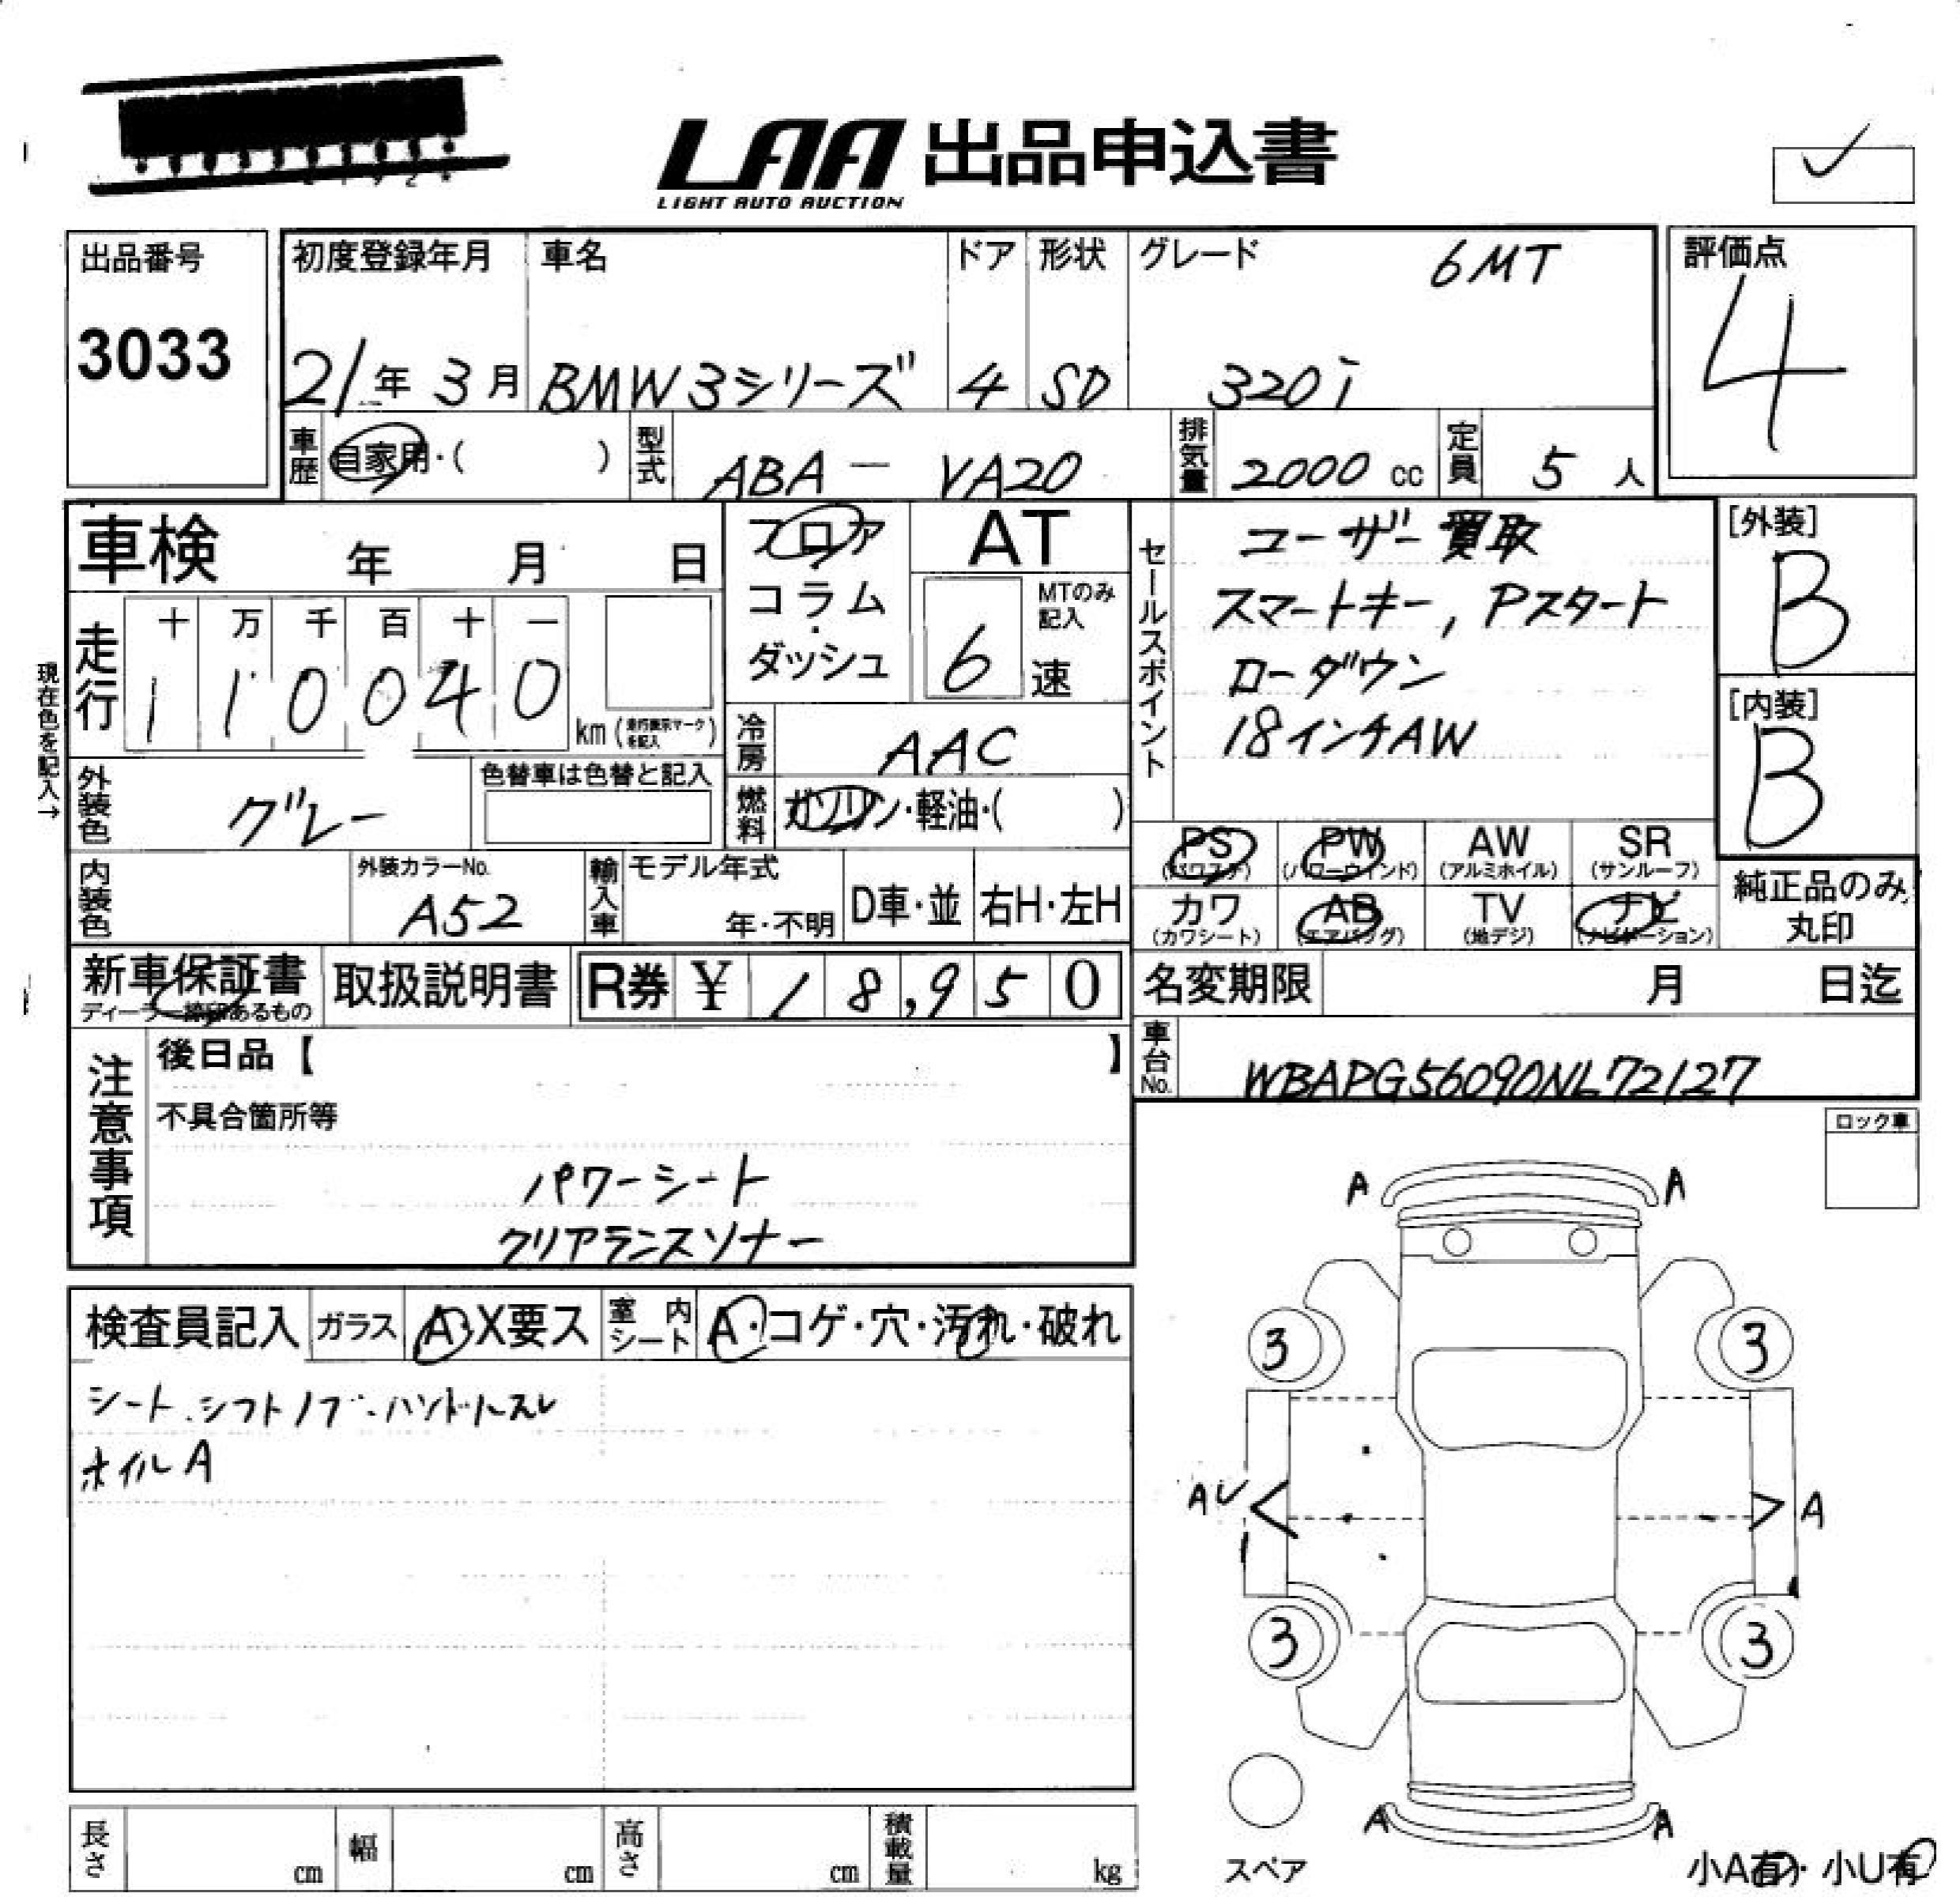 LAA 出品申込書
LIGHT AUTO AUCTION
出品番号
3033
初度登録年月
21年 3月
車名
BMW3シリーズ
ドア
4
形状
SD
グレード
6MT
320i
評価点
4
車歴
自家用・( )
型式
ABA - VA20
排気量
2000 cc
定員
5 人
車検 年 月 日
フロア
コラム
・
ダッシュ
AT
MTのみ記入
6 速
セールスポイント
ユーザー買取
スマートキー, Pスタート
ローダウン
18インチAW
[外装]
B
[内装]
B
現在色を記入→
走行
十 万 千 百 十 一
1 1 0 0 4 0
km (走行表示マークを記入)
冷房
AAC
外装色
グレー
色替車は色替と記入
燃料
ガソリン・軽油・( )
PS
(パワステ)
PW
(パワーウインド)
AW
(アルミホイル)
SR
(サンルーフ)
カワ
(カワシート)
AB
(エアバッグ)
TV
(地デジ)
ナビ
(ナビゲーション)
純正品のみ
丸印
内装色
外装カラーNo.
A52
輸入車
モデル年式
年・不明
D車・並
右H・左H
新車保証書
ディーラー捺印あるもの
取扱説明書
R券 ¥ 18,950
名変期限 月 日迄
車台No.
WBAPG56090NL72127
注意事項
後日品【 】
不具合箇所等
パワーシート
クリアランスソナー
ロック車
検査員記入
ガラス
A・X要ス
室内
シート
A・コゲ・穴・汚れ・破れ
シート、シフトノブ・ハンドルスレ
ホイルA
A A
3 3
AU A
3 3
A A
スペア
小A有・小U有
長さ cm
幅 cm
高さ cm
積載量 kg